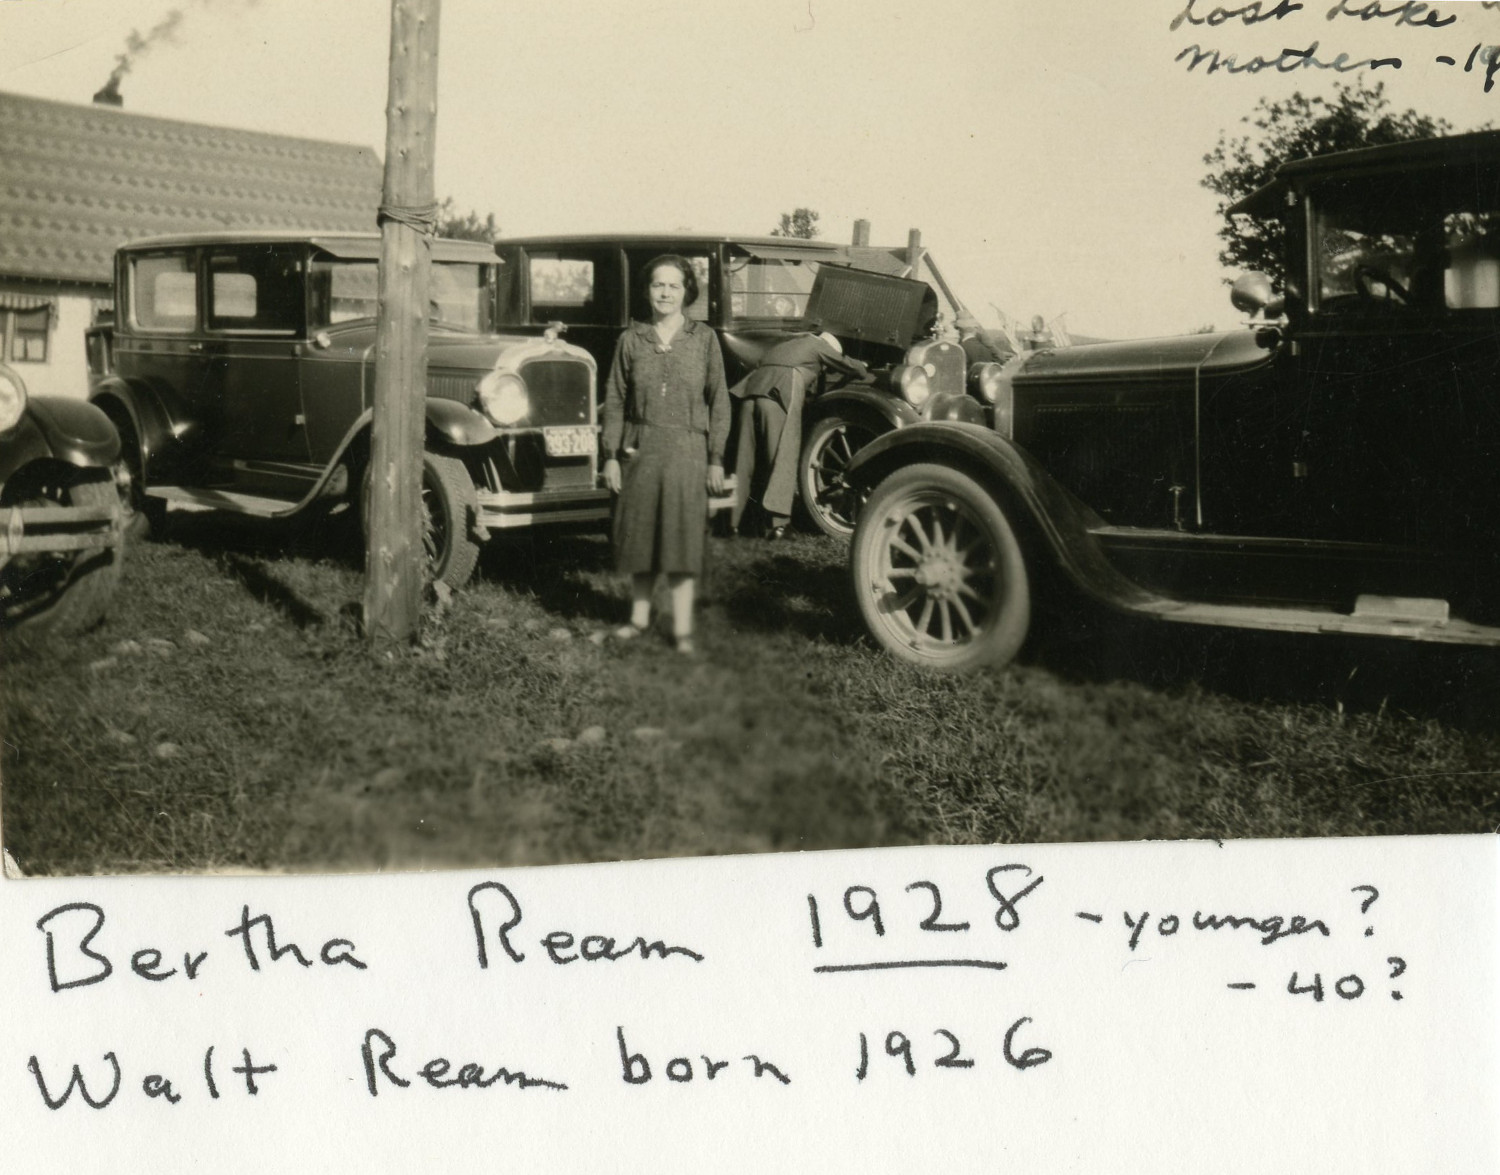 Lost Lake
Mother - 19
Bertha Ream 1928 - younger?
- 40?
Walt Ream born 1926